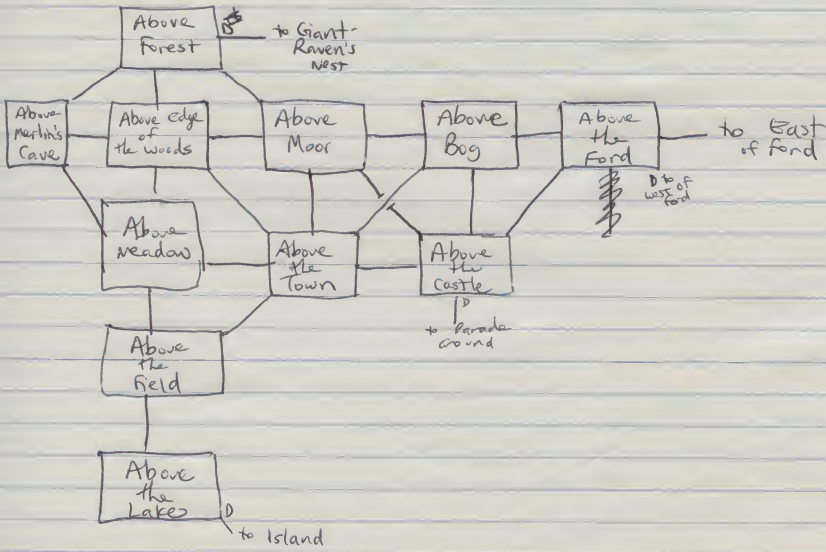 Above
Forest
D
to Giant-
Raven's
Nest
Above
Merlin's
Cave
Above Edge
of
the woods
Above
Moor
Above
Bog
Above
the
Ford
to East
of Ford
D to
west of
ford
Above
Meadow
Above
the
Town
Above
the
Castle
D
to Parade
Ground
Above
the
Field
Above
the
Lake
D
to Island